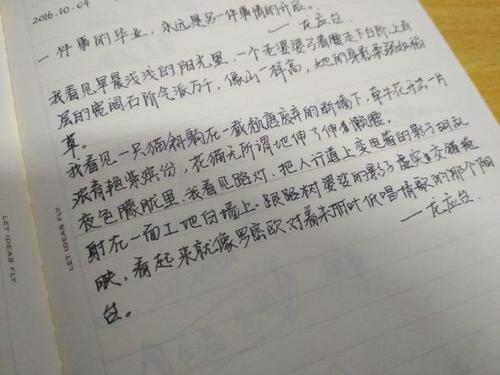 2016.10.04
一件事的毕业，永远是另一件事情的开启。
——龙应台
我看见早晨浅浅的阳光里，一个老婆婆弓着腰走下台阶，上百
层的宽阔石阶气派万千，像山一样高，她的身影柔弱如稻
草。
我看见一只猫斜躺在一截颓唐废弃的断墙下，牵牛花开出一片
浓青艳紫缤纷，花猫无所谓地伸了伸懒腰。
夜色朦胧里，我看见路灯，把人行道上变电箱的影子胡乱
射在一面工地白墙上，跟路树婆娑的影子虚实交错掩
映，看起来就像罗密欧对着朱丽叶低唱情歌的那个阳
台。
——龙应台
LET IDEAS FLY
LET IDEAS FLY